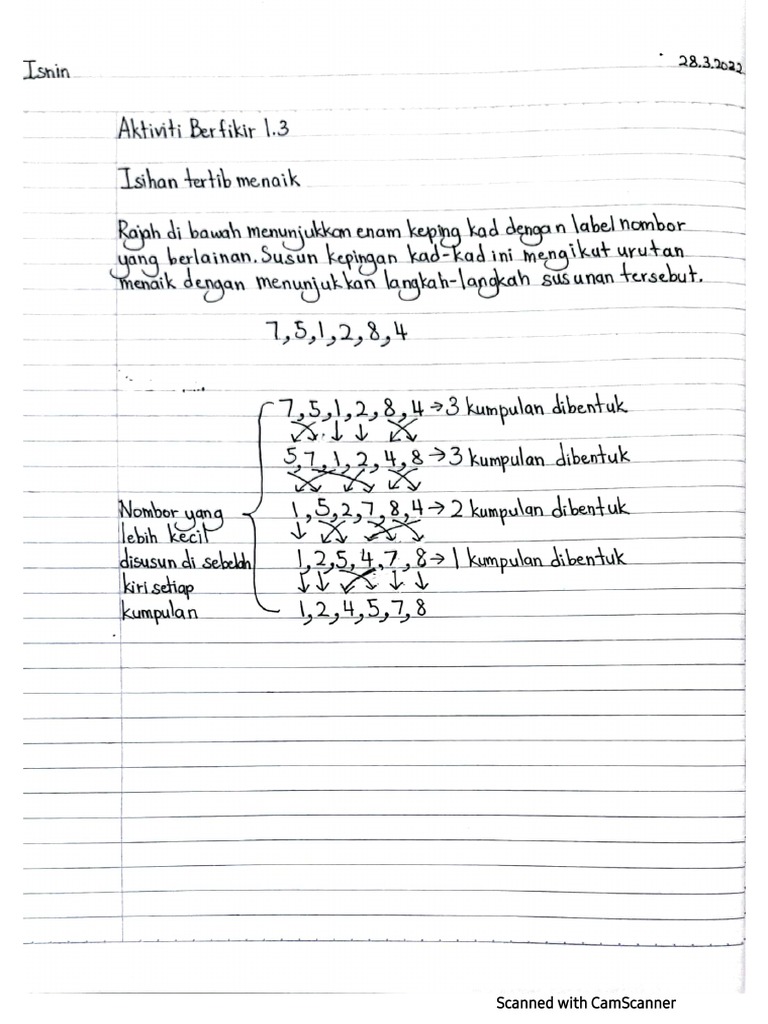 Isnin
28.3.2022
Aktiviti Berfikir 1.3
Isihan tertib menaik
Rajah di bawah menunjukkan enam keping kad dengan label nombor
yang berlainan. Susun kepingan kad-kad ini mengikut urutan
menaik dengan menunjukkan langkah-langkah susunan tersebut.
7,5,1,2,8,4
7,5,1,2,8,4→3 kumpulan dibentuk
5,7,1,2,4,8→3 kumpulan dibentuk
1,5,2,7,8,4→2 kumpulan dibentuk
1,2,5,4,7,8→1 kumpulan dibentuk
1,2,4,5,7,8
Nombor yang
lebih kecil
disusun di sebelah
kiri setiap
kumpulan
Scanned with CamScanner